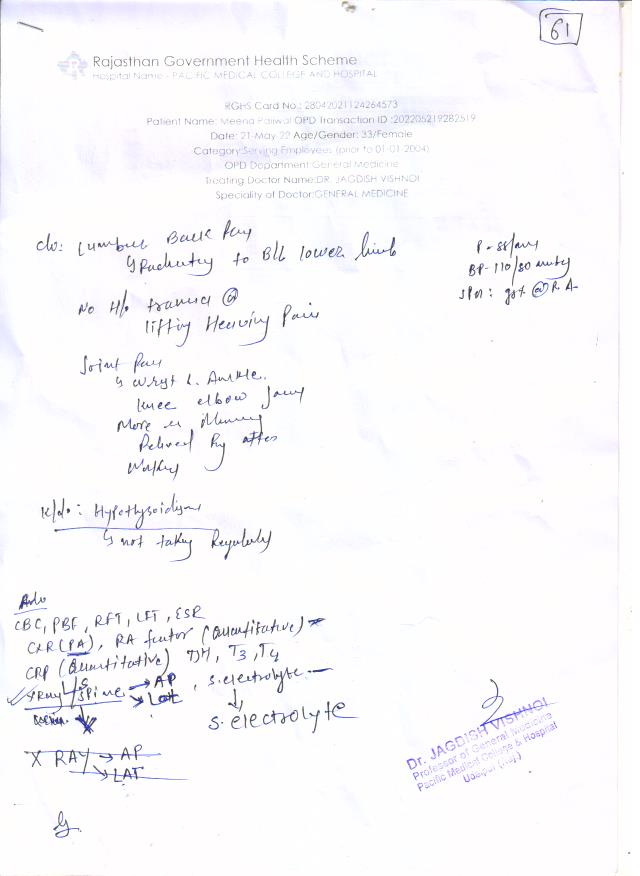 61
Rajasthan Government Health Scheme
Hospital Name - PACIFIC MEDICAL COLLEGE AND HOSPITAL
RGHS Card No.: 28042021124264573
Patient Name: Meena Paliwal OPD Transaction ID :202205219282519
Date: 21-May-22 Age/Gender: 33/Female
Category:Serving Employees (prior to 01-01-2004)
OPD Department:General Medicine
Treating Doctor Name:DR. JAGDISH VISHNOI
Speciality of Doctor:GENERAL MEDICINE
c/o: Lumbar Back Pain
to B/L lower limb
P-88/
BP-110/80
R.A.
No H/o trauma
lifting
Joint Pain
Ankle
knee elbow
More
Relived by after
K/c/o: Hypothyroidism
not taking Regularly
Adv
CBC, PBF, RFT, LFT, ESR
CXR (PA), RA factor (Quantitative)
CRP (Quantitative) TSH, T3, T4
XRAY L/S Spine → AP, s. electrolyte
→ LAT
s. electrolyte
X RAY → AP
→ LAT
Dr. JAGDISH VISHNOI
Professor of General Medicine
Pacific Medical College & Hospital
Udaipur (Raj.)